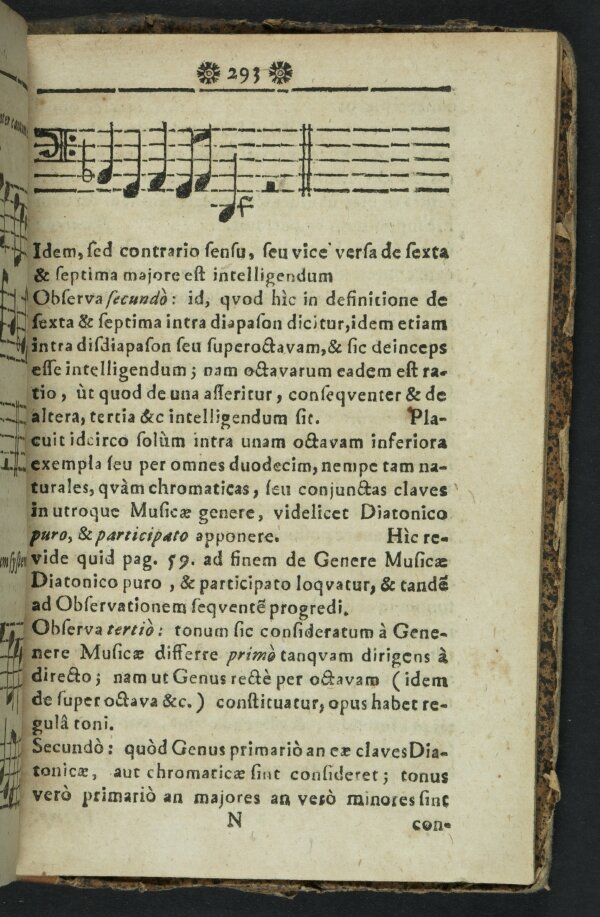 293
Idem, sed contrario sensu, seu vice versa de sexta
& septima majore est intelligendum
Observa secundò: id, qvod hìc in definitione de
sexta & septima intra diapason dicitur, idem etiam
intra disdiapason seu superoctavam, & sic deinceps
esse intelligendum; nam octavarum eadem est ra-
tio, ùt quod de una asseritur, conseqventer & de
altera, tertia &c intelligendum sit. Pla-
cuit idcirco solùm intra unam octavam inferiora
exempla seu per omnes duodecim, nempe tam na-
turales, qvàm chromaticas, seu conjunctas claves
in utroque Musicæ genere, videlicet Diatonico
puro, & participato apponere. Hìc re-
vide quid pag. 59. ad finem de Genere Musicæ
Diatonico puro, & participato loqvatur, & tandẽ
ad Observationem seqventẽ progredi.
Observa tertiò: tonum sic consideratum à Gene-
nere Musicæ differre primò tanqvam dirigens à
directo; nam ut Genus rectè per octavam (idem
de super octava &c.) constituatur, opus habet re-
gulâ toni.
Secundò: quòd Genus primariò an eæ claves Dia-
tonicæ, aut chromaticæ sint consideret; tonus
verò primariò an majores an verò minores sint
N
con-